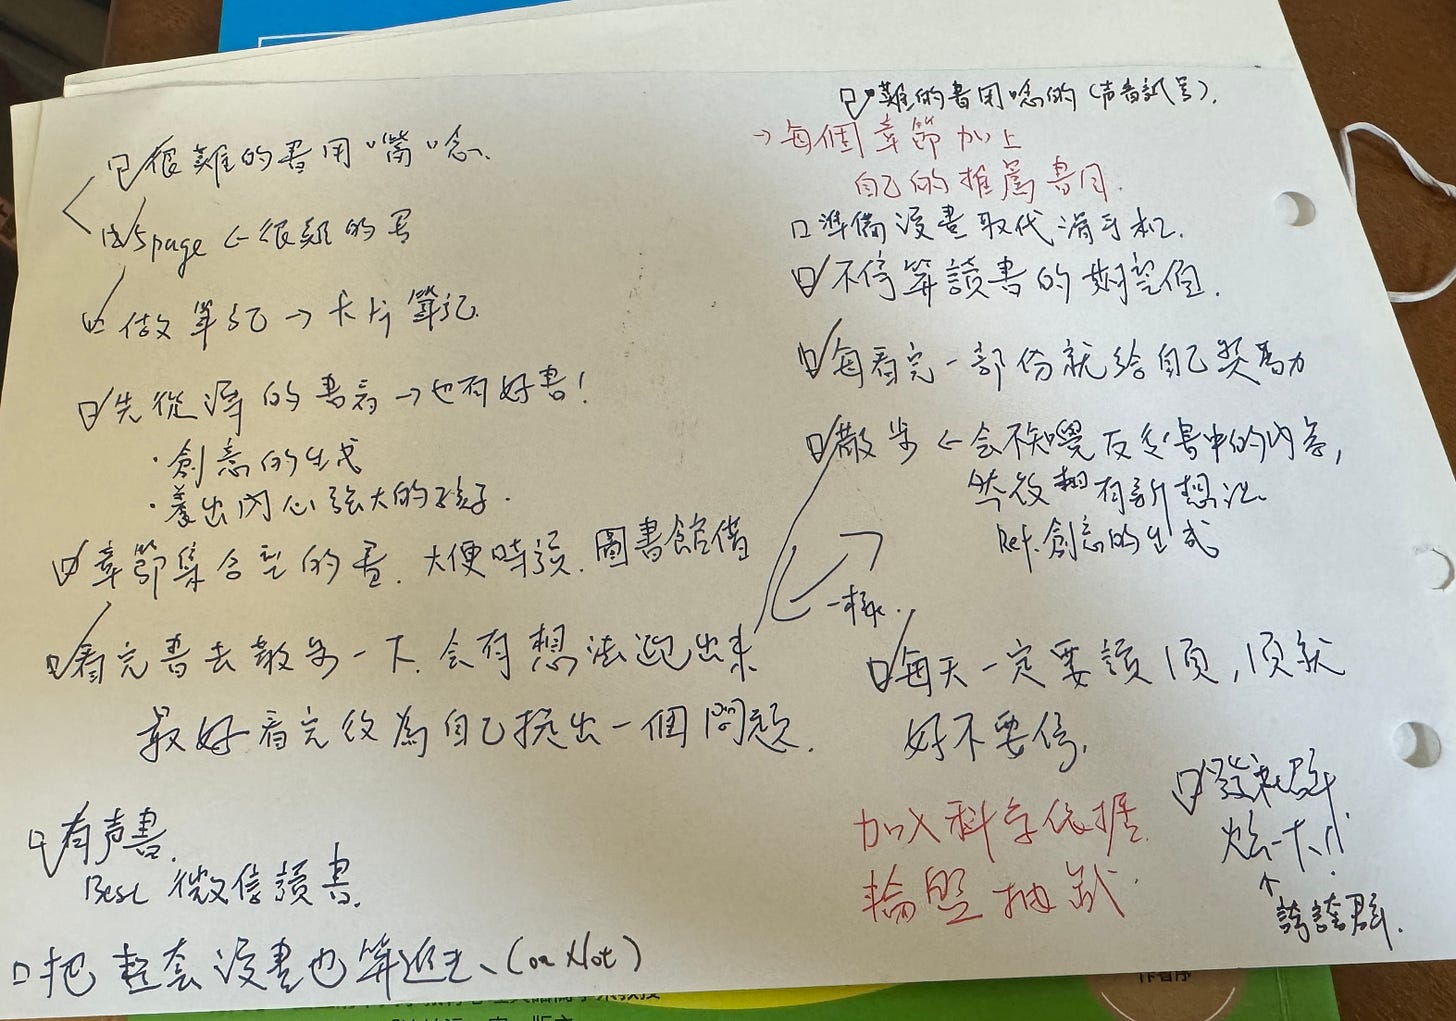 很難的書用"嘴"唸.
5page ← 很難的書
做筆記 → 卡片筆記
先從薄的書看 → 也有好書!
·創意的生成
·養出內心強大的孩子.
章節集合型的書. 大便時讀. 圖書館借
看完書去散步一下. 会有想法跑出來
最好看完後為自己提出一個問題.
有声書.
Best 微信讀書.
把整套漫畫也算進去、(or Not)
難的書用唸的(声音訊号).
→每個章節加上
自己的推薦書目.
準備漫畫取代滑手机.
不停算讀書的期望值.
每看完一部份就給自己奖励
散步 ← 会不知覺反芻書中的內容,
然後想有新想法
Ref. 創意的生成
一樣.
每天一定要讀1頁, 1頁就
好不要停.
加入科学依據
輪盤抽獎